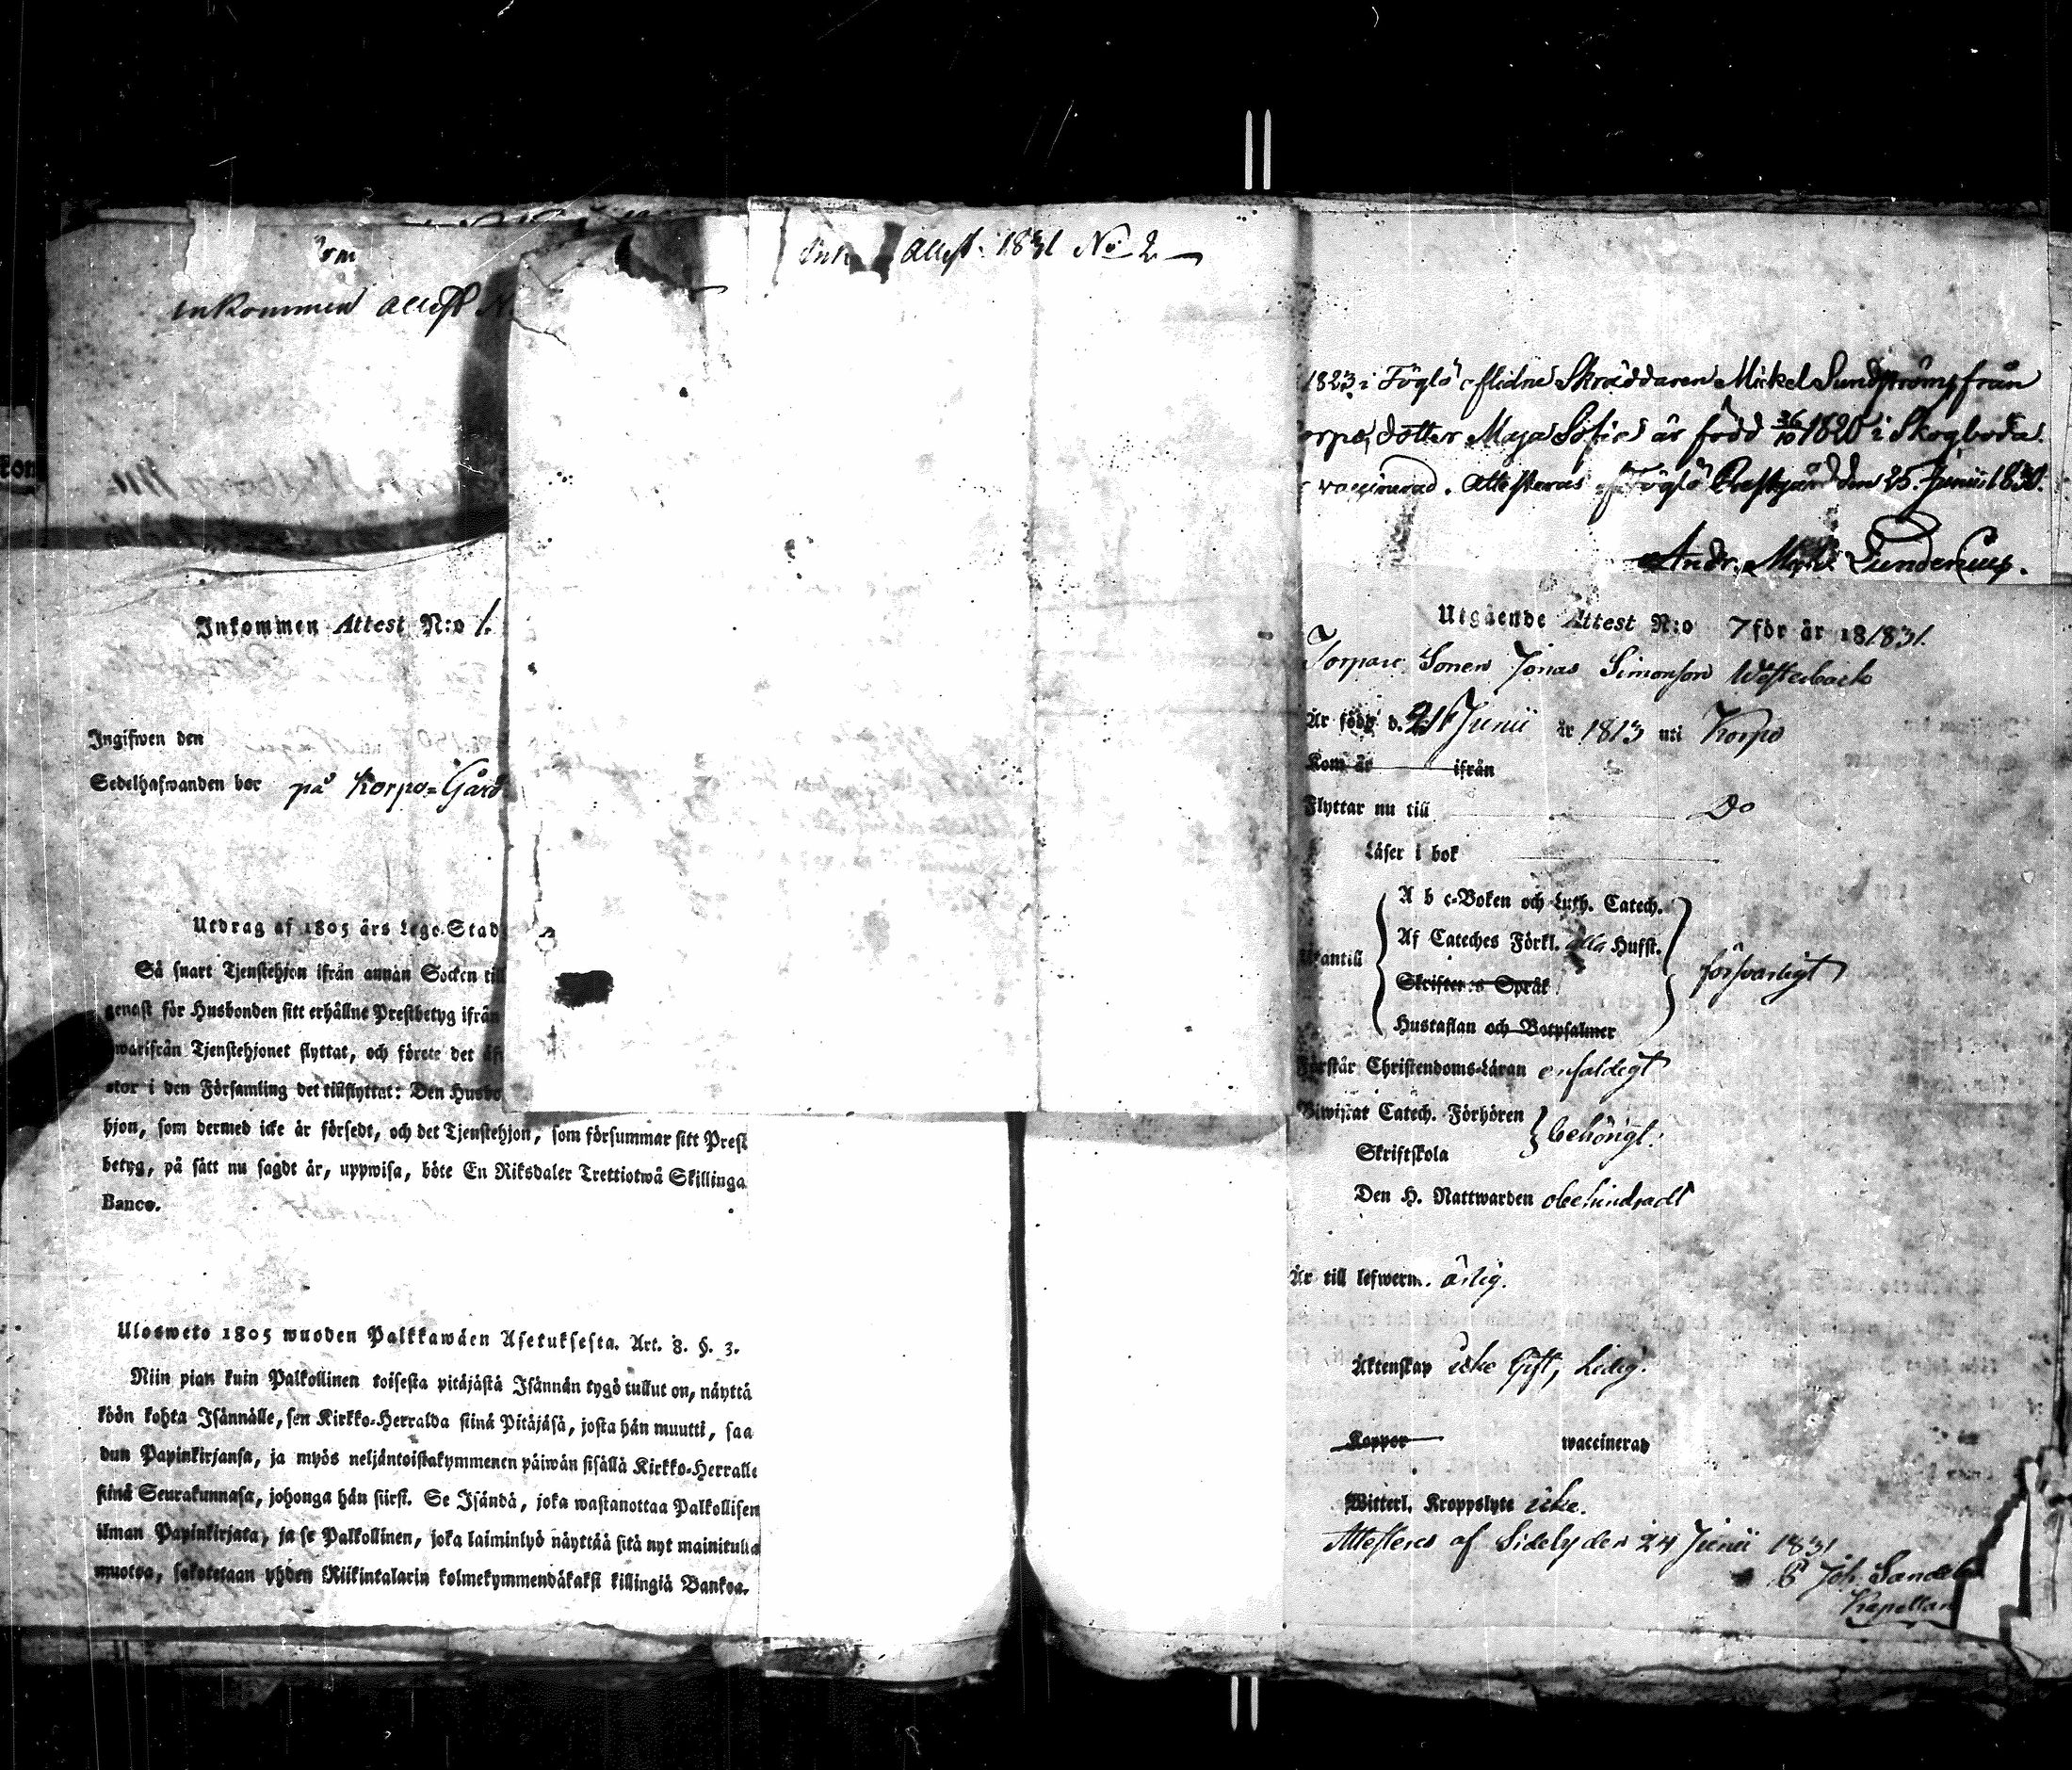 Inkommen Attest N.
Inkommen Attest N:o 1.
Ingifwen den
Sedelhafwanden bor på Korpo-Gård
Utdrag af 1805 års Lego-Stad
Så snart Tjenstehjon ifrån annan Socken till
genast för Husbonden sitt erhållne Prestbetyg ifrån
hwarifrån Tjenstehjonet flyttat, och förete det
stor i den Församling det tillflyttat: Den Husbo
hjon, som dermed icke är försedt, och det Tjenstehjon, som försummar sitt Prest
betyg, på sätt nu sagdt är, uppwisa, böte En Riksdaler Trettiotwå Skillinga
Banco.
Ulosweto 1805 wuoden Palkkawäen Asetuksesta. Art. 8. §. 3.
Niin pian kuin Palkollinen toisesta pitäjästä Isännän tygö tullut on, näyttä
köön kohta Isännälle, sen Kirkko-Herralda siinä Pitäjäsä, josta hän muutti, saa
dun Papinkirjansa, ja myös neljäntoistakymmenen päiwän sisällä Kirkko-Herralle
siinä Seurakunnasa, johonga hän siirst. Se Isändä, joka wastanottaa Palkollisen
ilman Papinkirjata, ja se Palkollinen, joka laiminlyö näyttää sitä nyt mainitulla
muotoa, sakotetaan yhden Riikintalarin kolmekymmendäkaksi killingiä Bankoa.
Attest 1831 No 2
1823 i Föglö aflidne Skräddaren Mickel Sundströms från
orpo, dotter Maja Sofia är född 26/10 1820 i Skogboda.
vaccinerad. Attesteras af Föglö Prestgård den 25. Junii 1830.
Andr.
Utgående Attest N:o 7 för år 18/831.
Torpare Sonen Jonas Simonson Westerback
Är född d. 21 Junii år 1813 uti Korpo
Kom år ifrån
Flyttar nu till Do
Läser i bok
Utantill
A b c-Boken och Luth. Catech.
Af Cateches Förkl. alla Hufst.
Skriftenes Språk
Hustaflan och Botpsalmer
försvarligt
Förstår Christendoms-Läran enfaldigt
Biwistat Catech. Förhören
Skriftskola
behörigt.
Den H. Nattwarden obehindradt
Är till lefwern. ärlig.
Äktenskap icke Gift, Ledig.
Koppor waccinerad
Witterl. Kroppslyte icke.
Attesteres af Sidely den 24 Junii 1831.
Joh. Sandel
Kapellan